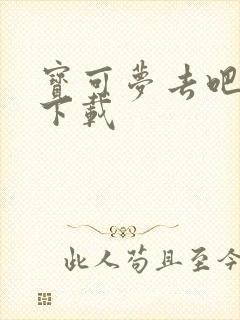 寶可夢去吧
下載
此人苟且至今